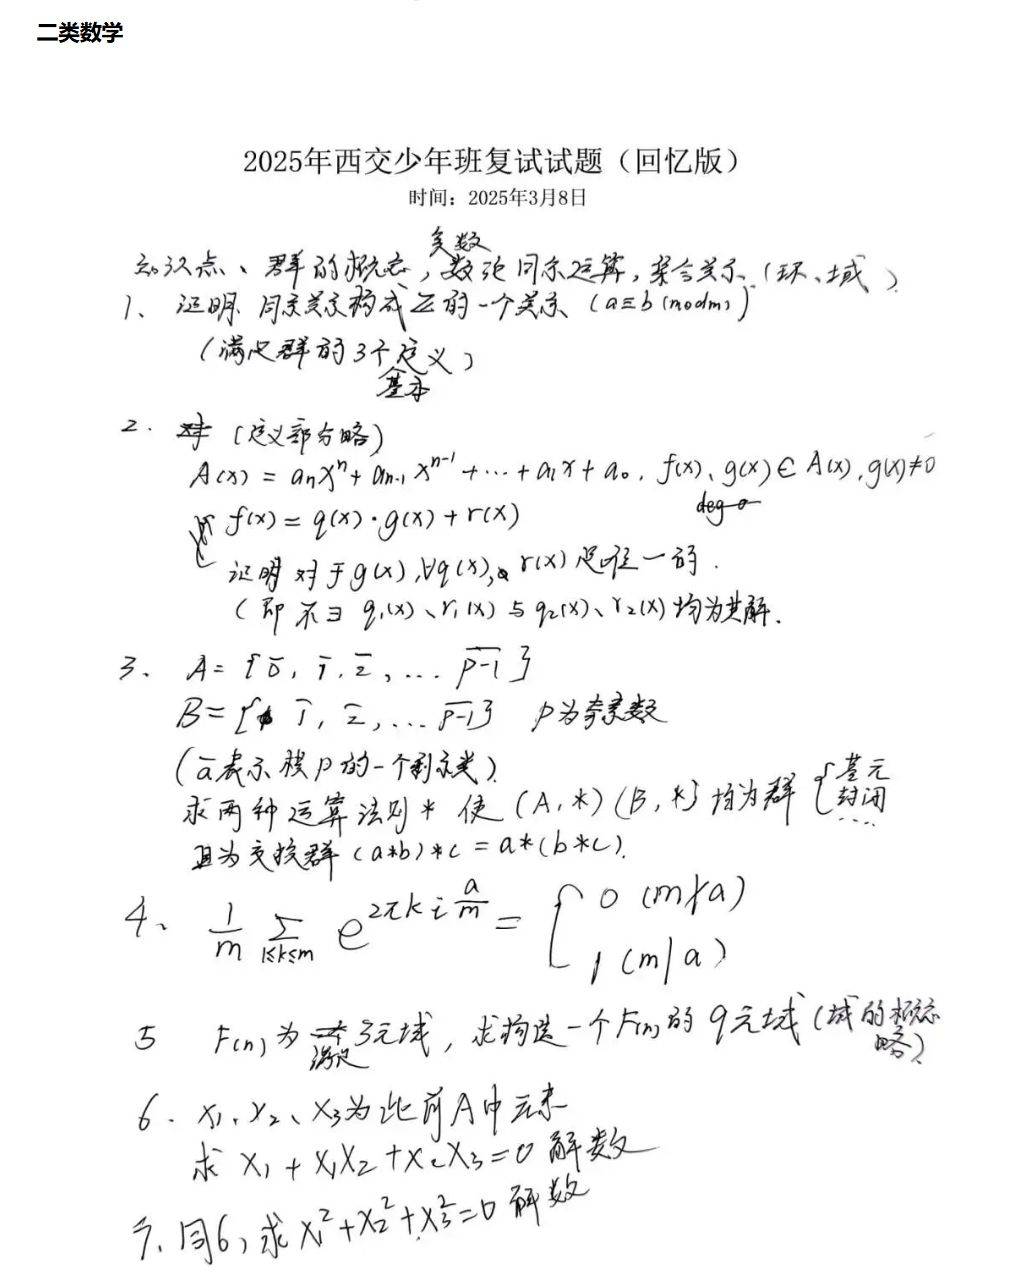 二类数学
2025年西交少年班复试试题（回忆版）
时间：2025年3月8日
复数
知识点、群的概念，数论同余运算，集合关系.（环、域）
1、证明 同余关系构成Z的一个关系 (a≡b (modm))
（满足群的3个定义）
基本
2. (定义部分略)
A(x) = aₙxⁿ + aₙ₋₁xⁿ⁻¹ + … + a₁x + a₀. f(x)、g(x) ∈ A(x), g(x)≠0
f(x) = q(x)·g(x) + r(x)
证明对于g(x), ∀q(x), r(x) 是唯一的.
(即不∃ q₁(x)、r₁(x) 与 q₂(x)、r₂(x) 均为其解.
3、A = {0̄, 1̄, 2̄, … p-1}
B = { 1̄, 2̄, … p-1} p为奇素数
(ā表示模p的一个剩余类).
求两种运算法则 * 使 (A, *) (B, *) 均为群 { 基元
封闭
…
且为交换群 (a*b)*c = a*(b*c).
4、1/m ∑ 1≤k≤m e^{2πki a/m} = { 0 (m∤a)
1 (m|a)
5 F(n)为 3元域，求构造一个F(n)的9元域（域的概念
略）
6. x₁、x₂、x₃为此前A中元素
求 x₁ + x₁x₂ + x₂x₃ = 0 解数
7. 同6，求 x₁² + x₂² + x₃² = 0 解数